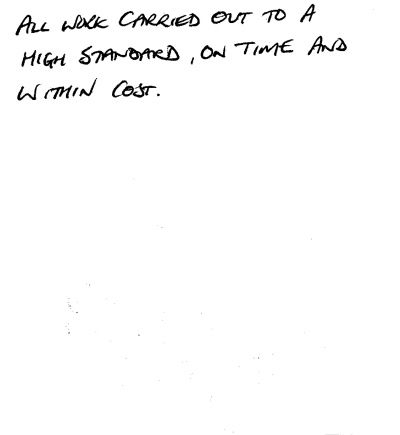 ALL WORK CARRIED OUT TO A
HIGH STANDARD, ON TIME AND
WITHIN COST.